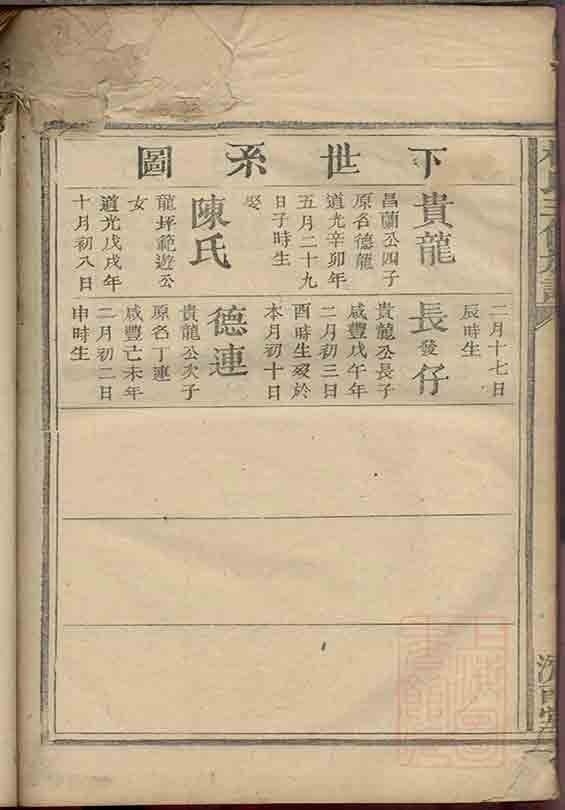 下世系圖
貴龍
昌蘭公四子
原名德龍
道光辛卯年
五月二十九
日子時生
娶
陳氏
龍坪範遊公
女
道光戊戌年
十月初八日
二月十七日
辰時生
長發仔
貴龍公長子
咸豐戊午年
二月初三日
酉時生歿於
本月初十日
德連
貴龍公次子
原名丁連
咸豐亡未年
二月初二日
申時生